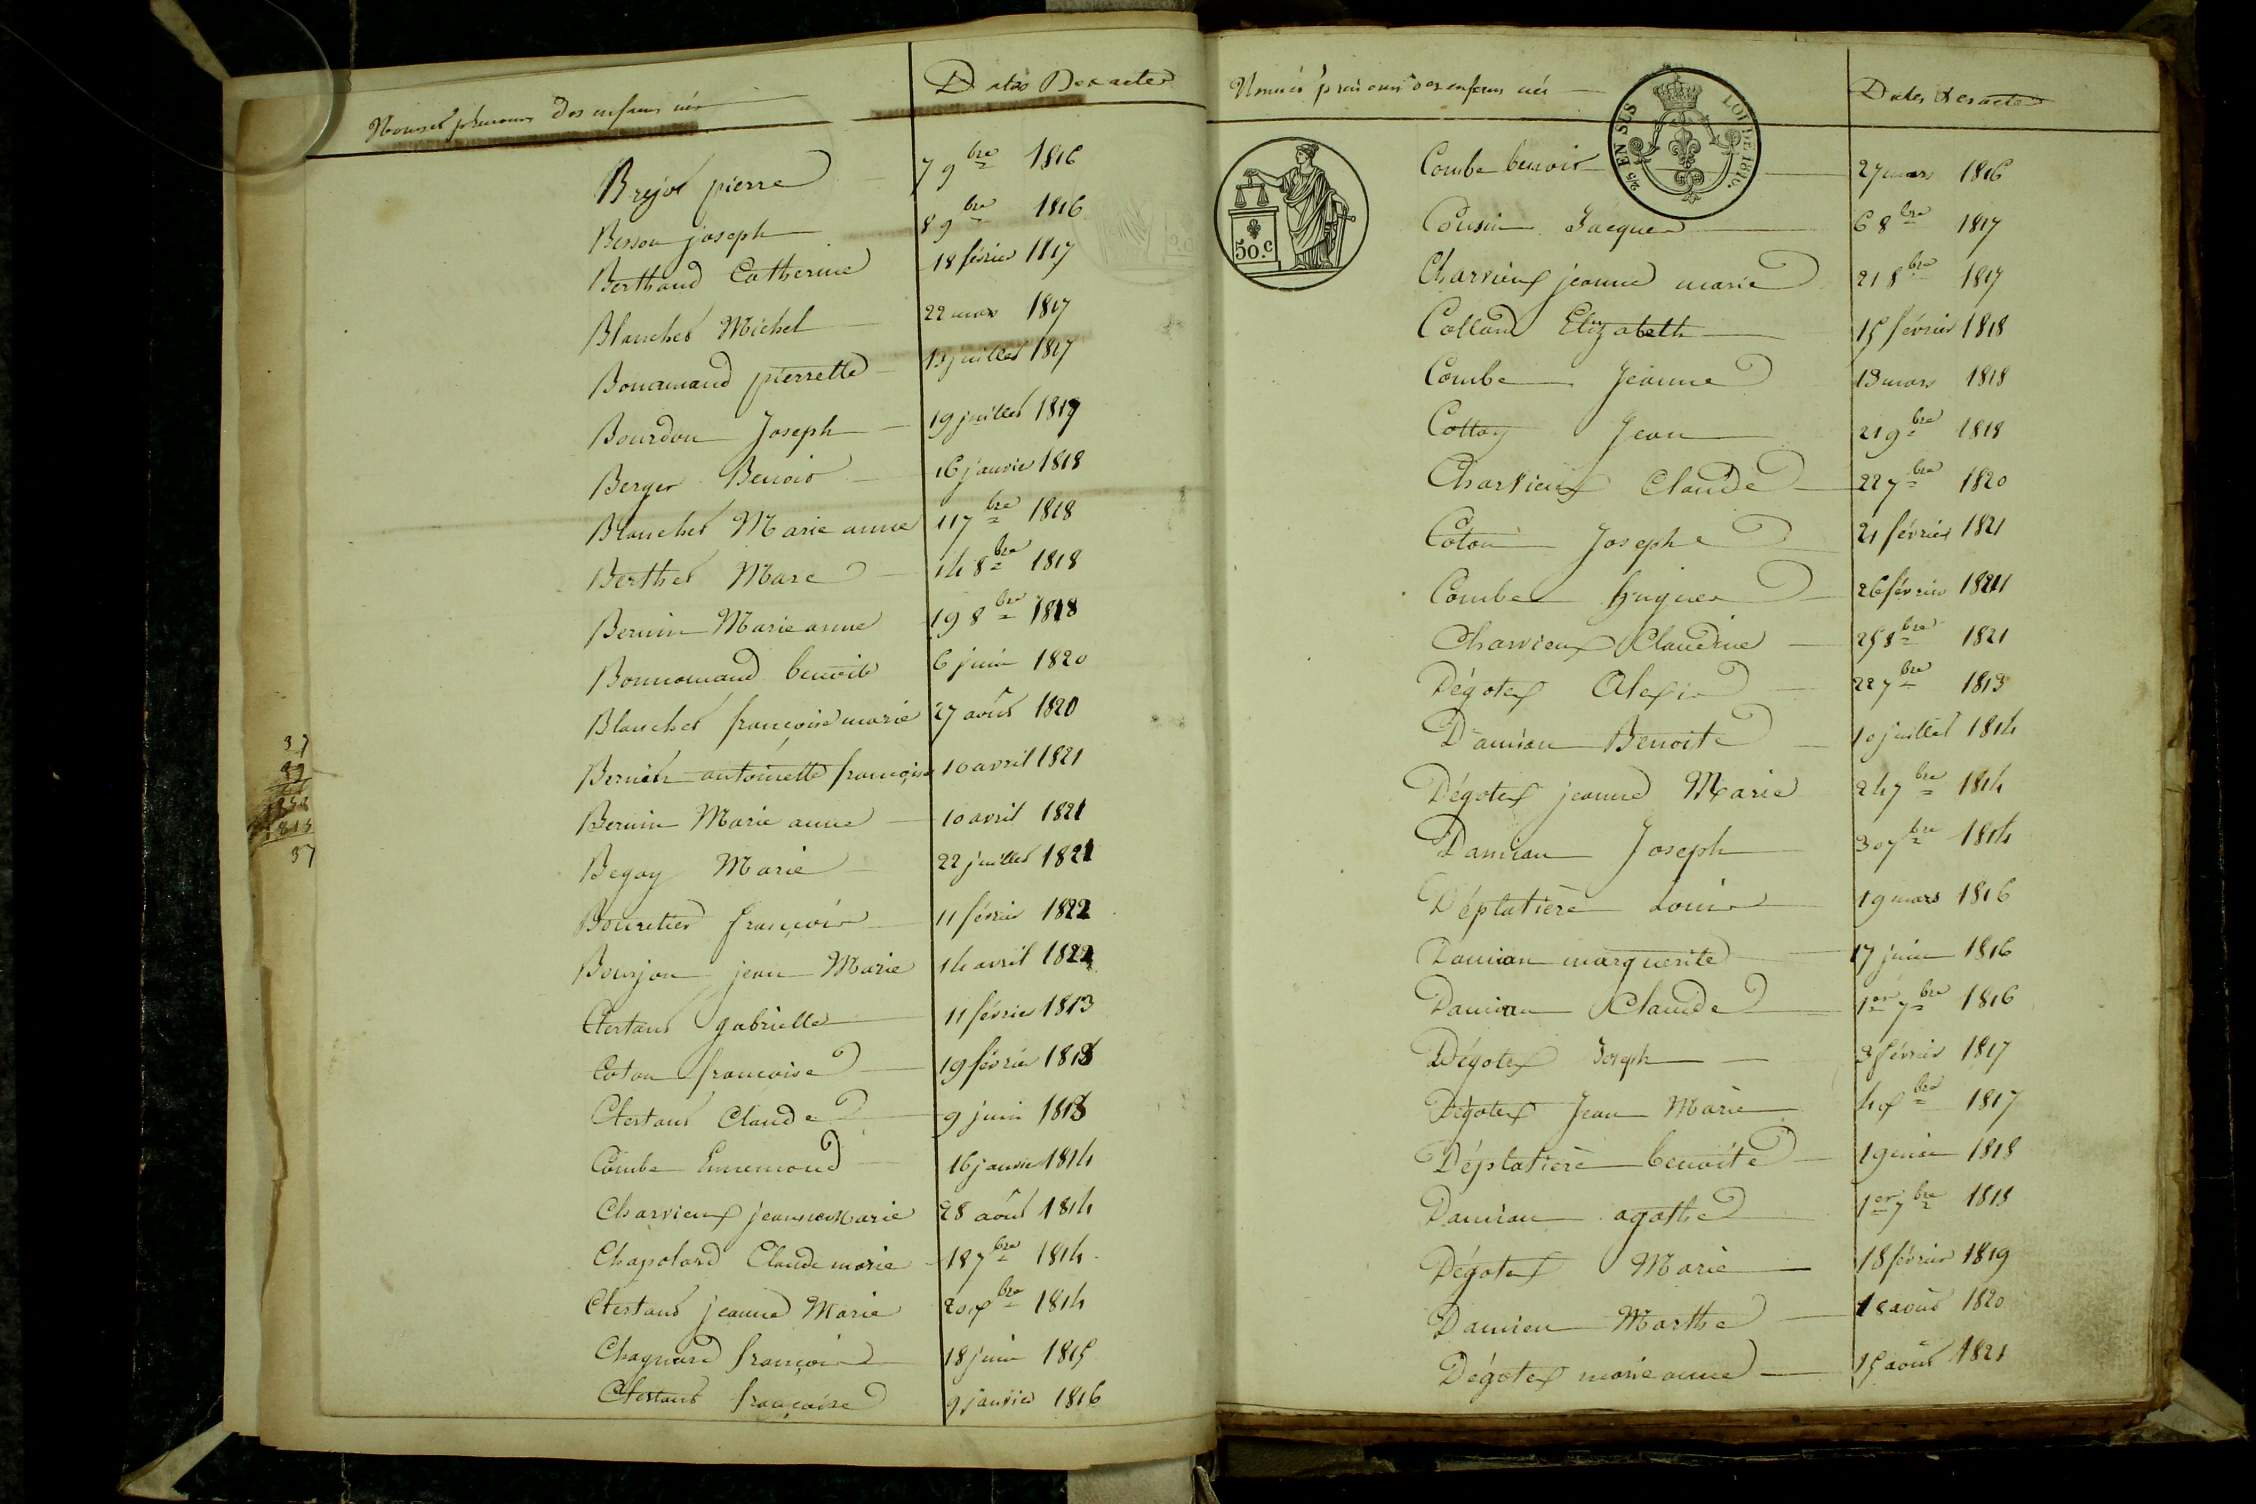 Noms et prénoms des enfans nés Dates Des actes
Brejot pierre 7 9bre 1816
Besson joseph 8 9bre 1816
Berthaud Catherine 18 février 1817
Blanchet Michel 22 mars 1817
Bonamand pierrette 13 juillet 1817
Bourdon Joseph 19 juillet 1817
Berger Benoit 16 janvier 1818
Blanchet Marie anne 11 7bre 1818
Berthet Marc 14 8bre 1818
Bernin Marie anne 19 8bre 1818
Bonnamand benoite 6 juin 1820
Blanchet françoise marie 27 août 1820
Bernin antoinette françoise 10 avril 1821
Bernin Marie anne 10 avril 1821
Begoy Marie 22 juillet 1821
Bouretier françois 11 février 1822
Bourjon jean Marie 14 avril 1822
Clertant gabrielle 11 février 1813
Coton françoise 19 février 1813
Clertant Claude 9 juin 1813
Combe Ennemond 16 janvier 1814
Charvieux jeanne Marie 28 août 1814
Chapolard Claude marie 18 7bre 1814
Clertant jeanne Marie 20 Xbre 1814
Chagnard françois 18 juin 1815
Clertant françoise 9 janvier 1816
37
37
Noms et prénoms des enfans nés Dates des actes
EN SUS
LOI DE 1816.
50.c
Combe benoit 27 mars 1816
Cousin Jacques 6 8bre 1817
Charvieux jeanne marie 21 8bre 1817
Colland Elizabeth 15 février 1818
Combe Jeanne 13 mars 1818
Cottay Jean 21 9bre 1818
Charvieux Claude 22 7bre 1820
Coton Joseph 21 février 1821
Combe hugues 26 février 1821
Charvieux Claudine 25 8bre 1821
Dégotex Alexis 22 7bre 1813
Damian Benoite 10 juillet 1814
Dégotex jeanne Marie 24 7bre 1814
Damian Joseph 30 7bre 1814
Déplatière Louis 19 mars 1816
Damian marguerite 17 juin 1816
Damian Claude 1er 7bre 1816
Dégotex Joseph 3 février 1817
Dégotex Jean Marie 4 Xbre 1817
Déplatière benoite 19 mai 1818
Damian agathe 1er 7bre 1818
Dégotex Marie 18 février 1819
Damian Marthe 18 août 1820
Dégotex marie anne 15 août 1821